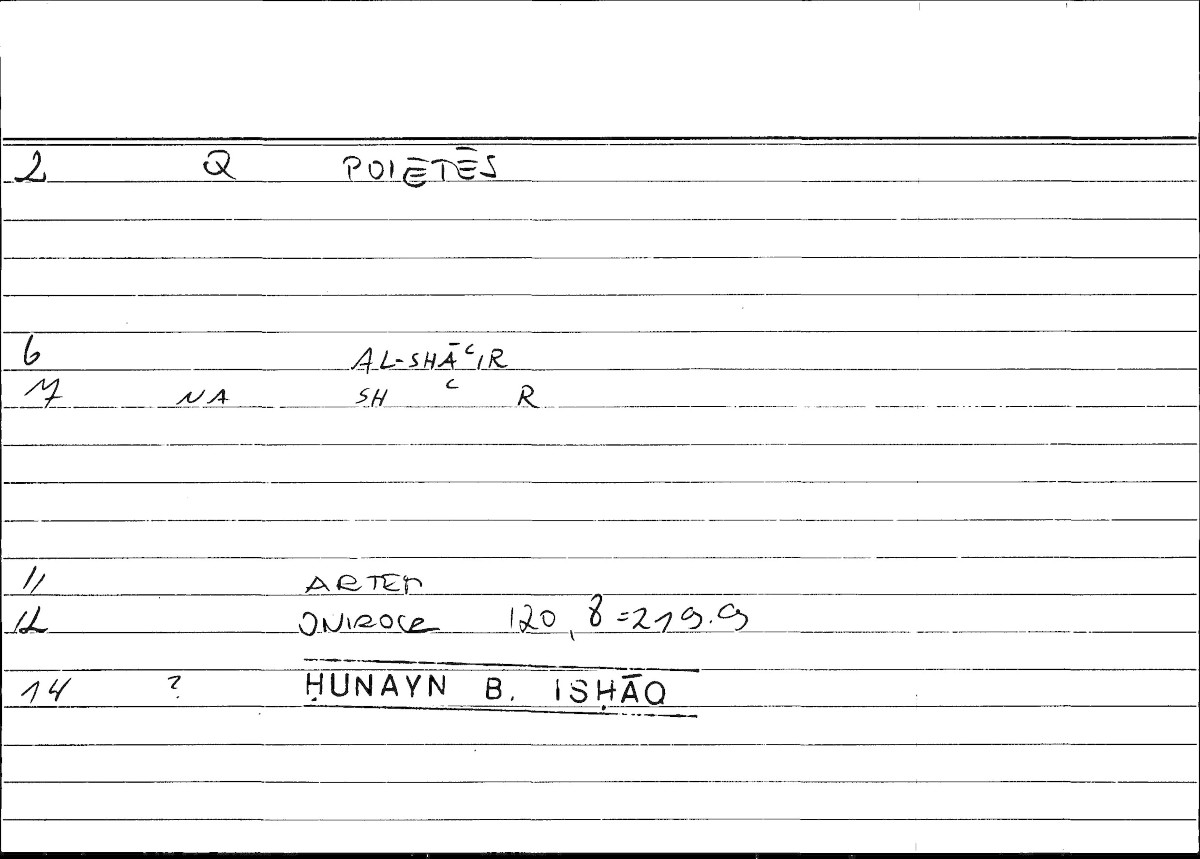 2 Q POIĒTĒS
6 AL-SHĀʿIR
7 NA SH ʿ R
11 ARTEM
12 ONIROCR 120,8=219.9
14 ? ḤUNAYN B. ISḤĀQ